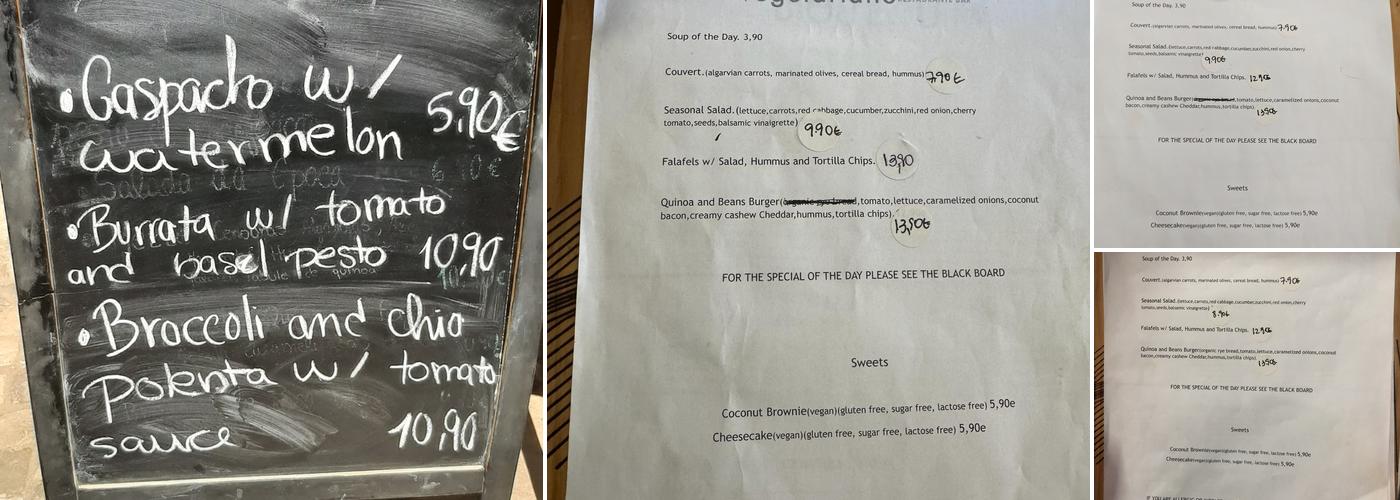 • Gaspacho w/
watermelon 5,90€
• Burrata w/ tomato
and basel pesto 10,90
• Broccoli and chia
polenta w/ tomato
sauce 10,90
Soup of the Day. 3,90
Couvert.(algarvian carrots, marinated olives, cereal bread, hummus) 7,90€
Seasonal Salad.(lettuce,carrots,red cabbage,cucumber,zucchini,red onion,cherry
tomato,seeds,balsamic vinaigrette) 9,90€
Falafels w/ Salad, Hummus and Tortilla Chips. 13,90
Quinoa and Beans Burger(organic rye bread,tomato,lettuce,caramelized onions,coconut
bacon,creamy cashew Cheddar,hummus,tortilla chips).
13,50€
FOR THE SPECIAL OF THE DAY PLEASE SEE THE BLACK BOARD
Sweets
Coconut Brownie(vegan)(gluten free, sugar free, lactose free) 5,90e
Cheesecake(vegan)(gluten free, sugar free, lactose free) 5,90e
Soup of the Day. 3,90
Couvert.(algarvian carrots, marinated olives, cereal bread, hummus) 7,90€
Seasonal Salad.(lettuce,carrots,red cabbage,cucumber,zucchini,red onion,cherry
tomato,seeds,balsamic vinaigrette)
9,90€
Falafels w/ Salad, Hummus and Tortilla Chips. 12,90€
Quinoa and Beans Burger(organic rye bread,tomato,lettuce,caramelized onions,coconut
bacon,creamy cashew Cheddar,hummus,tortilla chips).
13,50€
FOR THE SPECIAL OF THE DAY PLEASE SEE THE BLACK BOARD
Sweets
Coconut Brownie(vegan)(gluten free, sugar free, lactose free) 5,90e
Cheesecake(vegan)(gluten free, sugar free, lactose free) 5,90e
Soup of the Day. 3,90
Couvert.(algarvian carrots, marinated olives, cereal bread, hummus) 7,90€
Seasonal Salad.(lettuce,carrots,red cabbage,cucumber,zucchini,red onion,cherry
tomato,seeds,balsamic vinaigrette)
8,90€
Falafels w/ Salad, Hummus and Tortilla Chips. 12,90€
Quinoa and Beans Burger(organic rye bread,tomato,lettuce,caramelized onions,coconut
bacon,creamy cashew Cheddar,hummus,tortilla chips).
13,50€
FOR THE SPECIAL OF THE DAY PLEASE SEE THE BLACK BOARD
Sweets
Coconut Brownie(vegan)(gluten free, sugar free, lactose free) 5,90e
Cheesecake(vegan)(gluten free, sugar free, lactose free) 5,90e